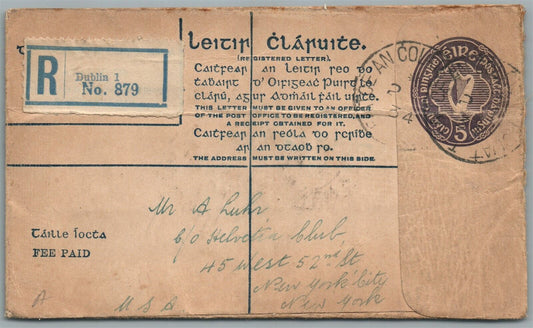 Leitir Cláruiṫe.
(REGISTERED LETTER).
Caitfear an leitir reo do
ṫabairt d'Oifigeaċ Puirt le
clárú, agur admáil ḟáil uirṫe.
THIS LETTER MUST BE GIVEN TO AN OFFICER
OF THE POST OFFICE TO BE REGISTERED, AND
A RECEIPT OBTAINED FOR IT.
Caitfear an reóla do rcríbe
ar an dtaob ro.
THE ADDRESS MUST BE WRITTEN ON THIS SIDE.
R
Dublin 1
No. 879
éire
POSTAGE
5
Táille íocta
FEE PAID
Mr A Luhr
c/o Helvetia Club,
45 West 52nd St,
New York City
New York
U.S.A
A